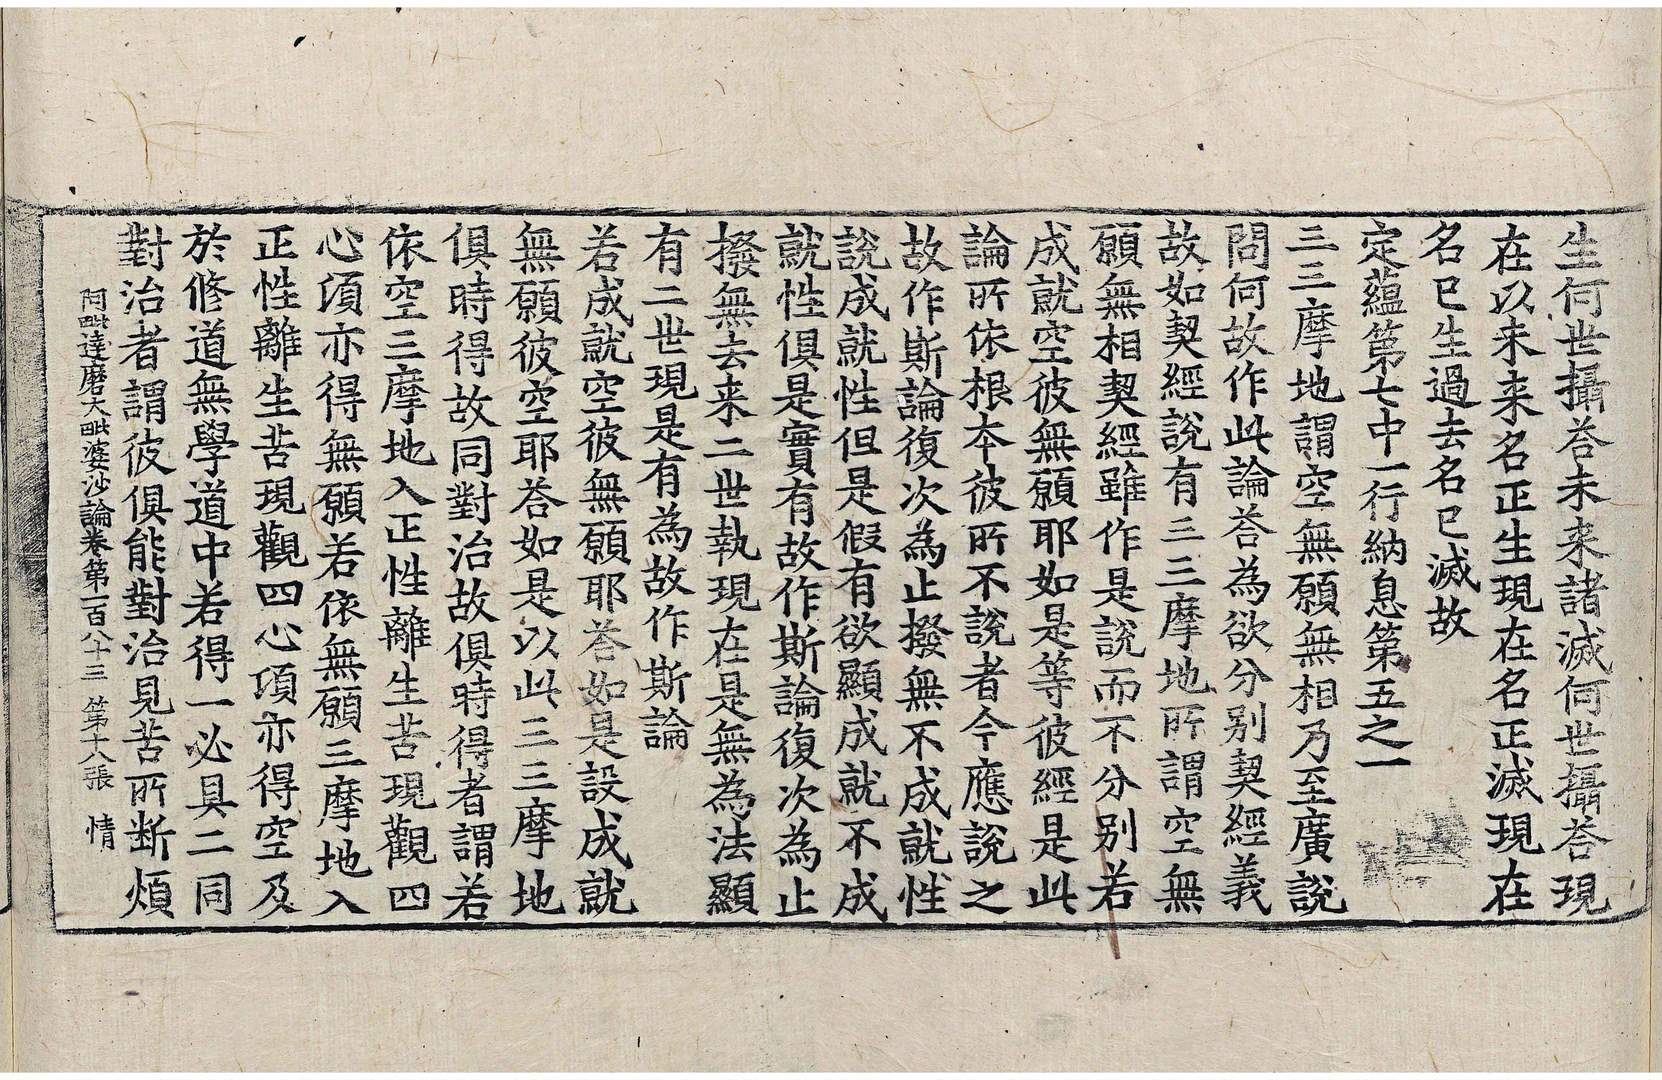 生何世攝荅未来諸滅何世攝荅現
在以未来名正生現在名正滅現在
名已生過去名已滅故
定蘊第七中一行納息第五之一
三三摩地謂空無願無相乃至廣說
問何故作此論荅為欲分别契經義
故如契經說有三三摩地所謂空無
願無相契經雖作是說而不分别若
成就空彼無願耶如是等彼經是此
論所依根本彼所不說者今應說之
故作斯論復次為止撥無不成就性
說成就性但是假有欲顯成就不成
就性俱是實有故作斯論復次為止
撥無去来二世執現在是無為法顯
有二世現是有為故作斯論
若成就空彼無願耶荅如是設成就
無願彼空耶荅如是以此三三摩地
俱時得故同對治故俱時得者謂若
依空三摩地入正性離生苦現觀四
心頃亦得無願若依無願三摩地入
正性離生苦現觀四心頃亦得空及
於修道無學道中若得一必具二同
對治者謂彼俱能對治見苦所断煩
阿毗達磨大毗婆沙論卷第一百八十三 第十八張 情